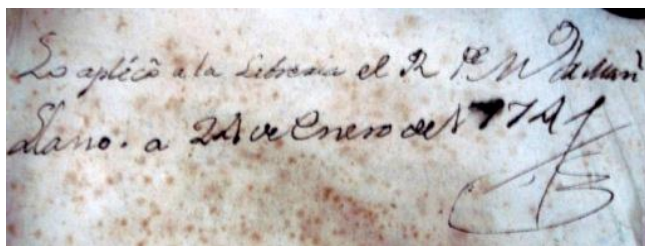 Lo aplicô a la Libreria el R P M
Llano. a 24 de Enero de 1774